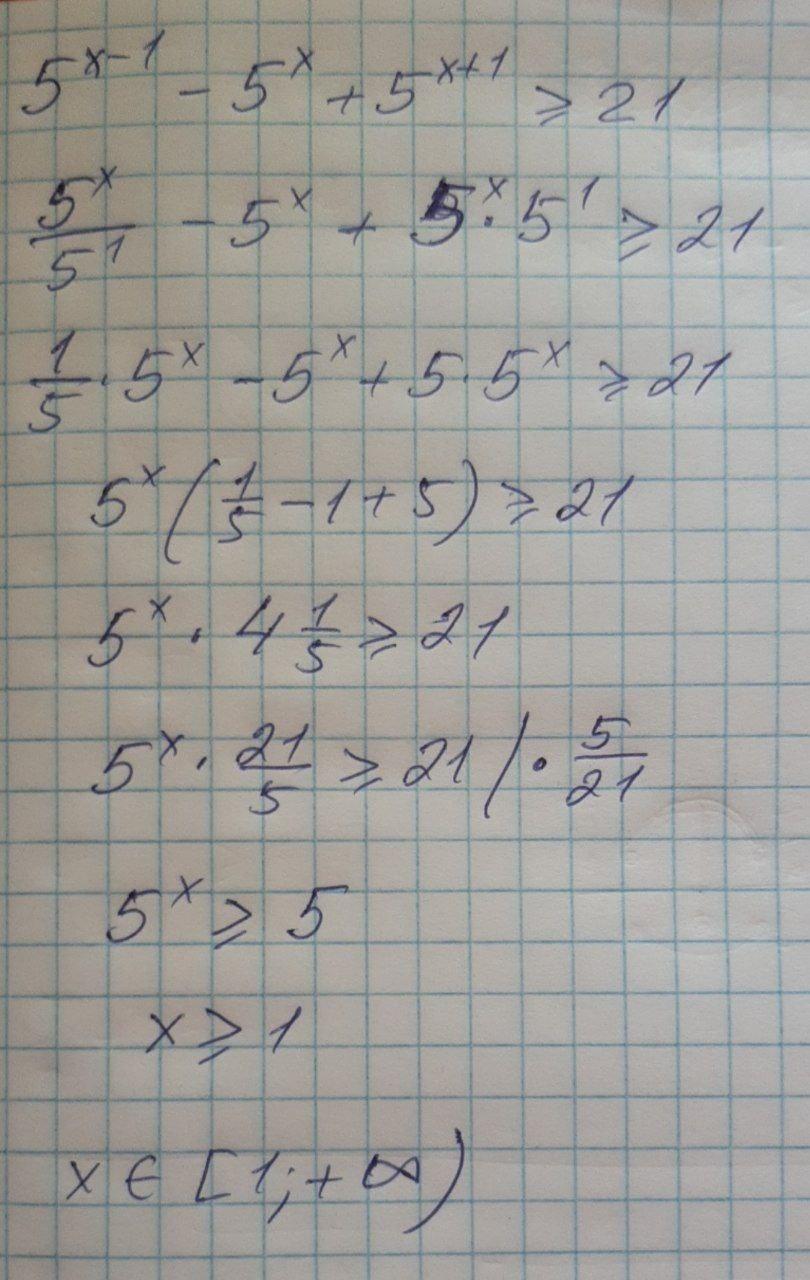 5^{x-1} - 5^x + 5^{x+1} ⩾ 21
\frac{5^x}{5^1} - 5^x + 5^x · 5^1 ⩾ 21
\frac{1}{5} · 5^x - 5^x + 5 · 5^x ⩾ 21
5^x (\frac{1}{5} - 1 + 5) ⩾ 21
5^x · 4\frac{1}{5} ⩾ 21
5^x · \frac{21}{5} ⩾ 21 / · \frac{5}{21}
5^x ⩾ 5
x ⩾ 1
x ∈ [1; +∞)